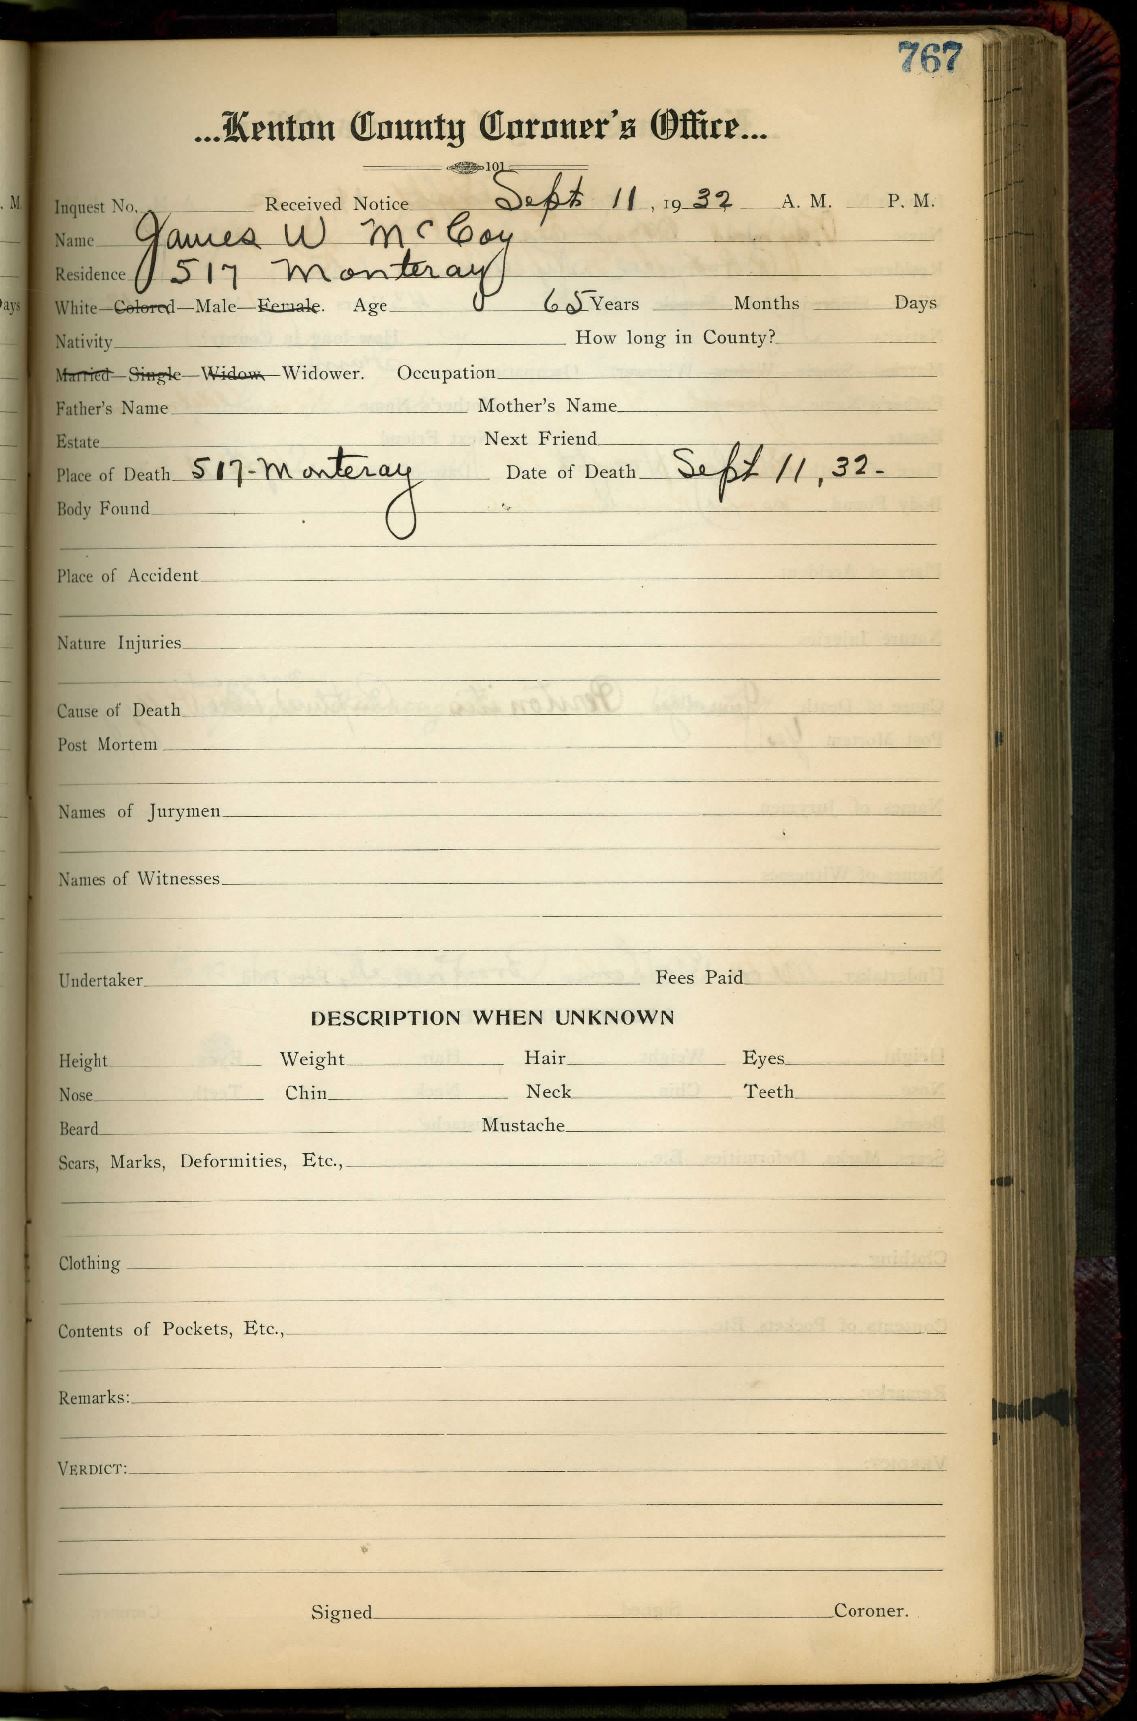 767
...Kenton County Coroner's Office...
101
Inquest No. Received Notice Sept 11, 1932 A. M. P. M.
Name James W McCoy
Residence 517 Monteray
White—Colored—Male—Female. Age 65 Years Months Days
Nativity How long in County?
Married—Single—Widow—Widower. Occupation
Father's Name Mother's Name
Estate Next Friend
Place of Death 517-Monteray Date of Death Sept 11, 32-
Body Found
Place of Accident
Nature Injuries
Cause of Death
Post Mortem
Names of Jurymen
Names of Witnesses
Undertaker Fees Paid
DESCRIPTION WHEN UNKNOWN
Height Weight Hair Eyes
Nose Chin Neck Teeth
Beard Mustache
Scars, Marks, Deformities, Etc.,
Clothing
Contents of Pockets, Etc.,
Remarks:
VERDICT:
Signed Coroner.